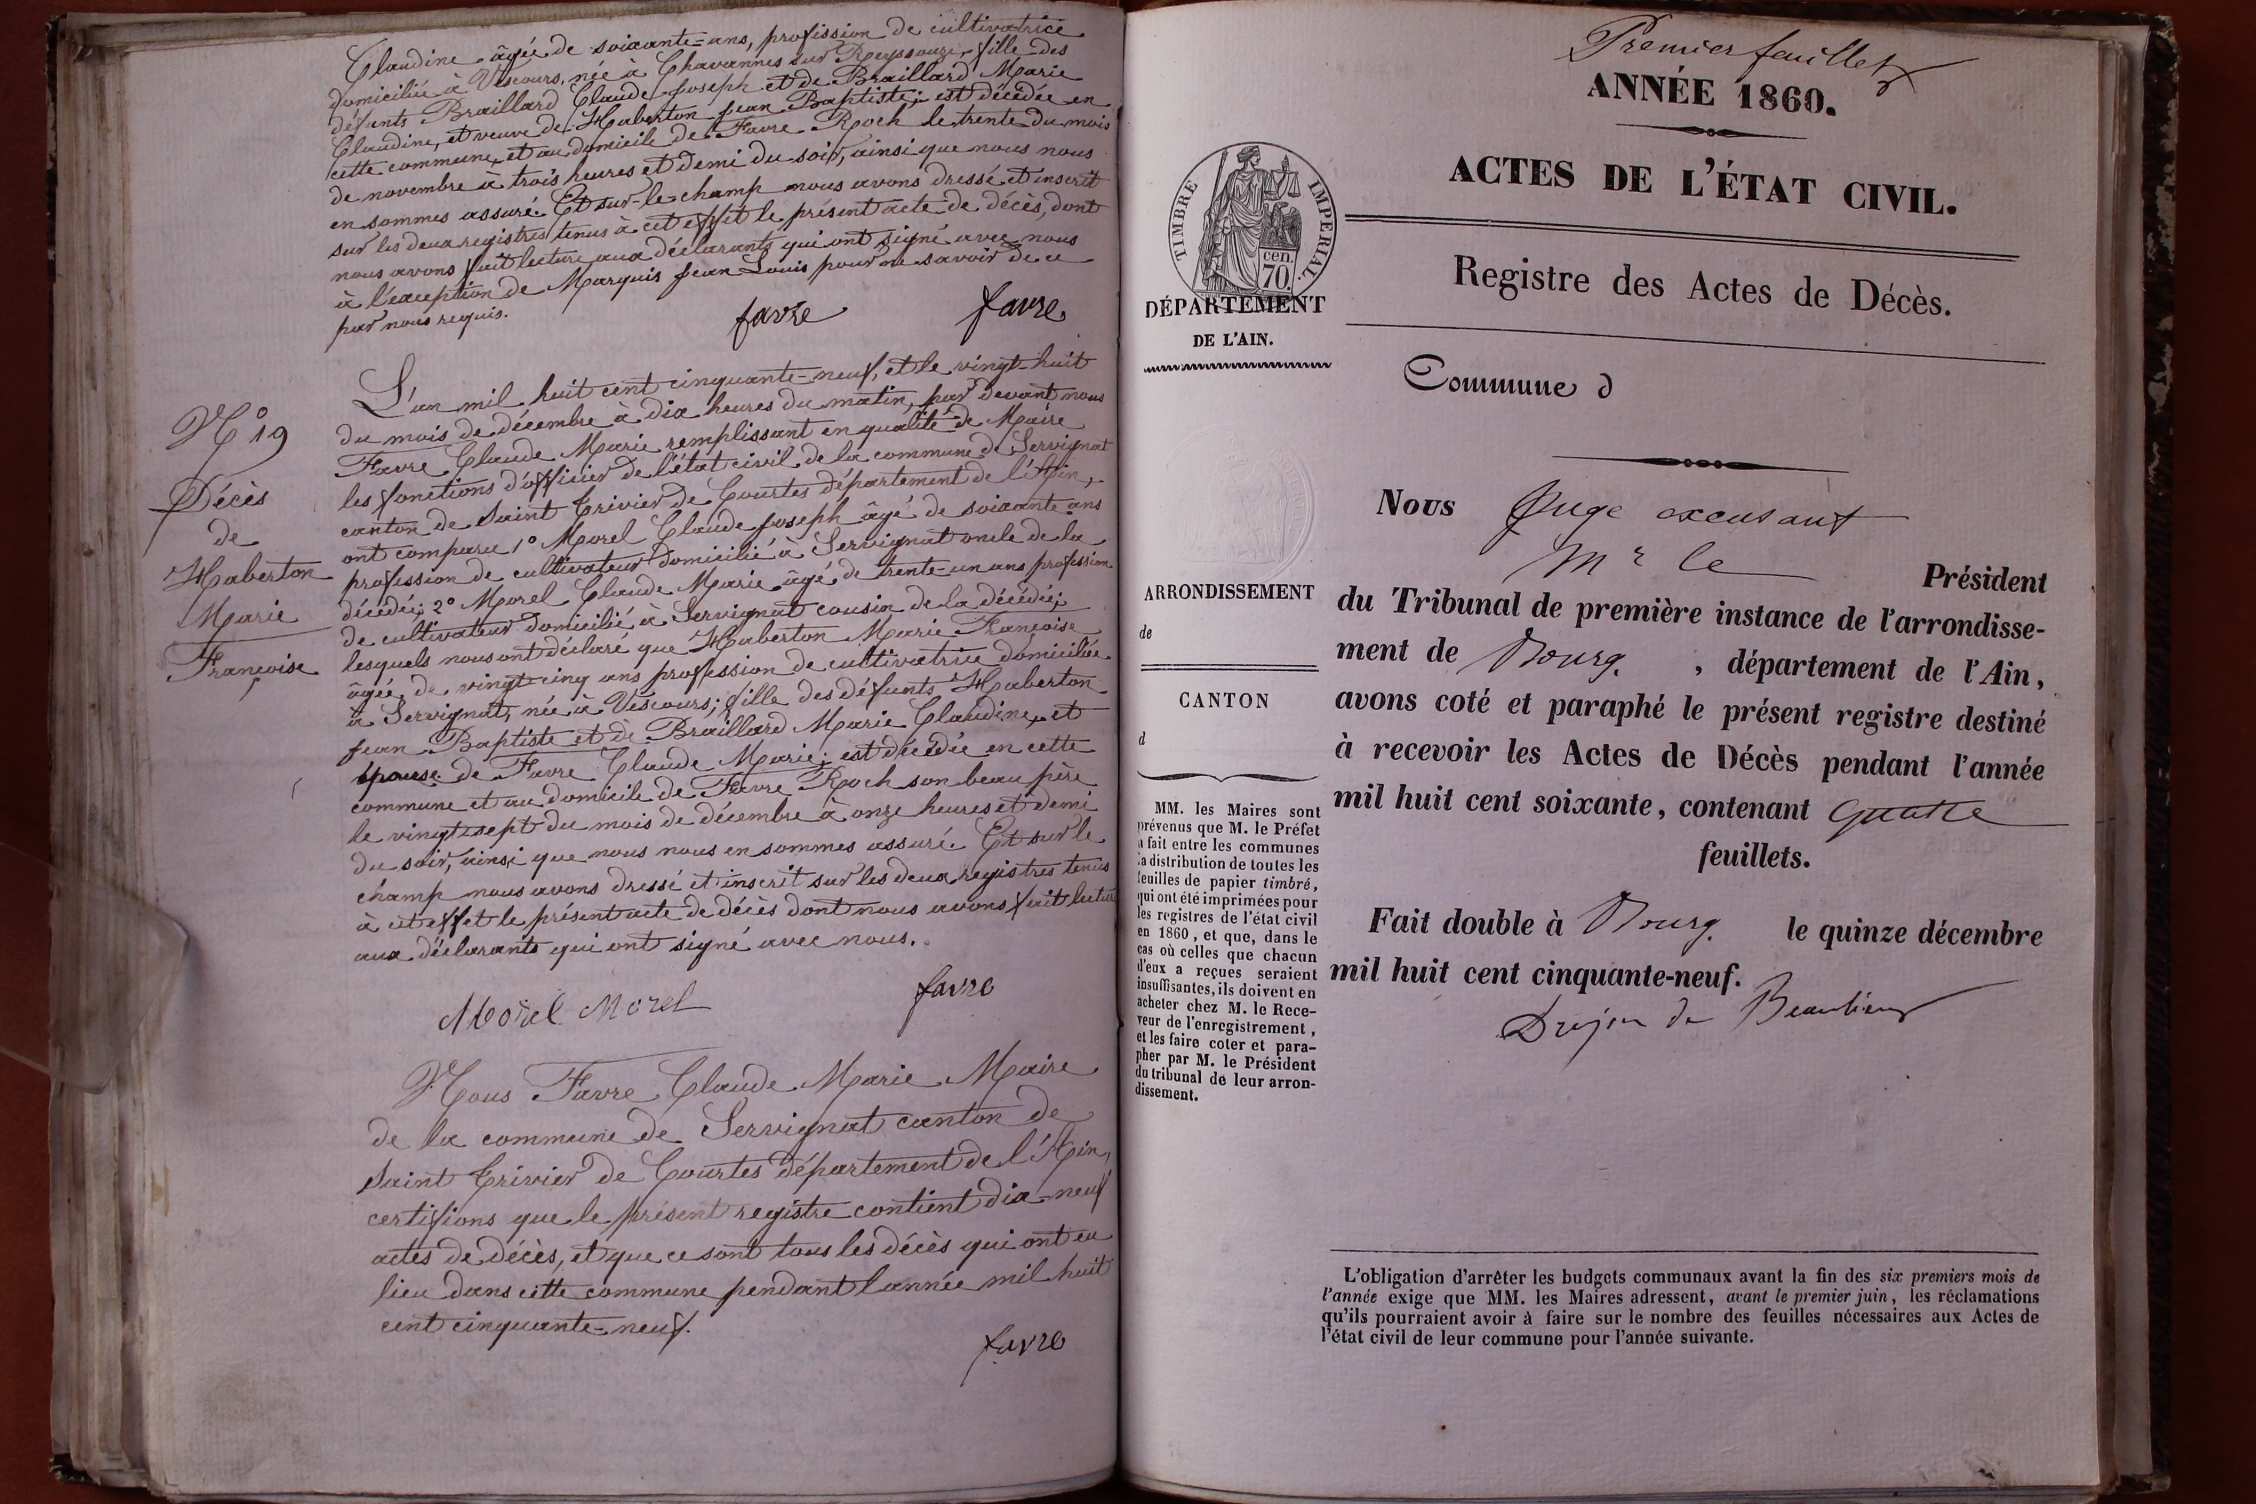 Claudine âgée de soixante-ans, profession de cultivatrice
domiciliée à Vescours, née à Chavannes sur Reyssouze, fille des
défunts Braillard Claude Joseph et de Braillard Marie
Claudine, et veuve de Haberton Jean Baptiste; est décédée en
cette commune et au domicile de Favre Roch le trente du mois
de novembre à trois heures et demi du soir, ainsi que nous nous
en sommes assuré. Et sur-le-champ nous avons dressé et inscrit
sur les deux registres tenus à cet effet le présent acte de décès, dont
nous avons fait lecture aux déclarants qui ont signé avec nous
à l'exception de Marquis Jean Louis pour ne savoir de ce
par nous requis.
favre favre
N° 19
Décès
de
Haberton
Marie
Françoise
L'an mil huit cent cinquante-neuf, et le vingt-huit
du mois de décembre à dix heures du matin, par devant nous
Favre Claude Marie remplissant en qualité de Maire
les fonctions d'officier de l'état civil de la commune de Servignat
canton de Saint Trivier de Courtes département de l'Ain,
ont comparu 1° Morel Claude Joseph âgé de soixante ans
profession de cultivateur domicilié à Servignat oncle de la
décédée; 2° Morel Claude Marie âgé de trente-un ans profession
de cultivateur domicilié à Servignat cousin de la décédée;
lesquels nous ont déclaré que Haberton Marie Françoise
âgée de vingt-cinq ans profession de cultivatrice domiciliée
à Servignat, née à Vescours; fille des défunts Haberton
Jean Baptiste et de Braillard Marie Claudine, et
épouse de Favre Claude Marie; est décédée en cette
commune et au domicile de Favre Roch son beau père
le vingt-sept du mois de décembre à onze heures et demi
du soir, ainsi que nous nous en sommes assuré. Et sur le
champ nous avons dressé et inscrit sur les deux registres tenus
à cet effet le présent acte de décès dont nous avons fait lecture
aux déclarants qui ont signé avec nous.
Morel Morel favre
Nous Favre Claude Marie Maire
de la commune de Servignat canton de
Saint Trivier de Courtes département de l'Ain,
certifions que le présent registre contient dix-neuf
actes de décès, et que ce sont tous les décès qui ont eu
lieu dans cette commune pendant l'année mil huit
cent cinquante-neuf.
favre
Premier feuillet
ANNÉE 1860.
ACTES DE L'ÉTAT CIVIL.
Registre des Actes de Décès.
TIMBRE IMPERIAL.
cen.
70.
DÉPARTEMENT
DE L'AIN.
Commune d
ARRONDISSEMENT
de
CANTON
d
MM. les Maires sont
prévenus que M. le Préfet
a fait entre les communes
la distribution de toutes les
feuilles de papier timbré,
qui ont été imprimées pour
les registres de l'état civil
en 1860, et que, dans le
cas où celles que chacun
d'eux a reçues seraient
insuffisantes, ils doivent en
acheter chez M. le Rece-
veur de l'enregistrement,
et les faire coter et para-
pher par M. le Président
du tribunal de leur arron-
dissement.
Nous Juge excusant
Mr le Président
du Tribunal de première instance de l'arrondisse-
ment de Bourg, département de l'Ain,
avons coté et paraphé le présent registre destiné
à recevoir les Actes de Décès pendant l'année
mil huit cent soixante, contenant quatre
feuillets.
Fait double à Bourg le quinze décembre
mil huit cent cinquante-neuf.
Drujon de Beaulieu
L'obligation d'arrêter les budgets communaux avant la fin des six premiers mois de
l'année exige que MM. les Maires adressent, avant le premier juin, les réclamations
qu'ils pourraient avoir à faire sur le nombre des feuilles nécessaires aux Actes de
l'état civil de leur commune pour l'année suivante.